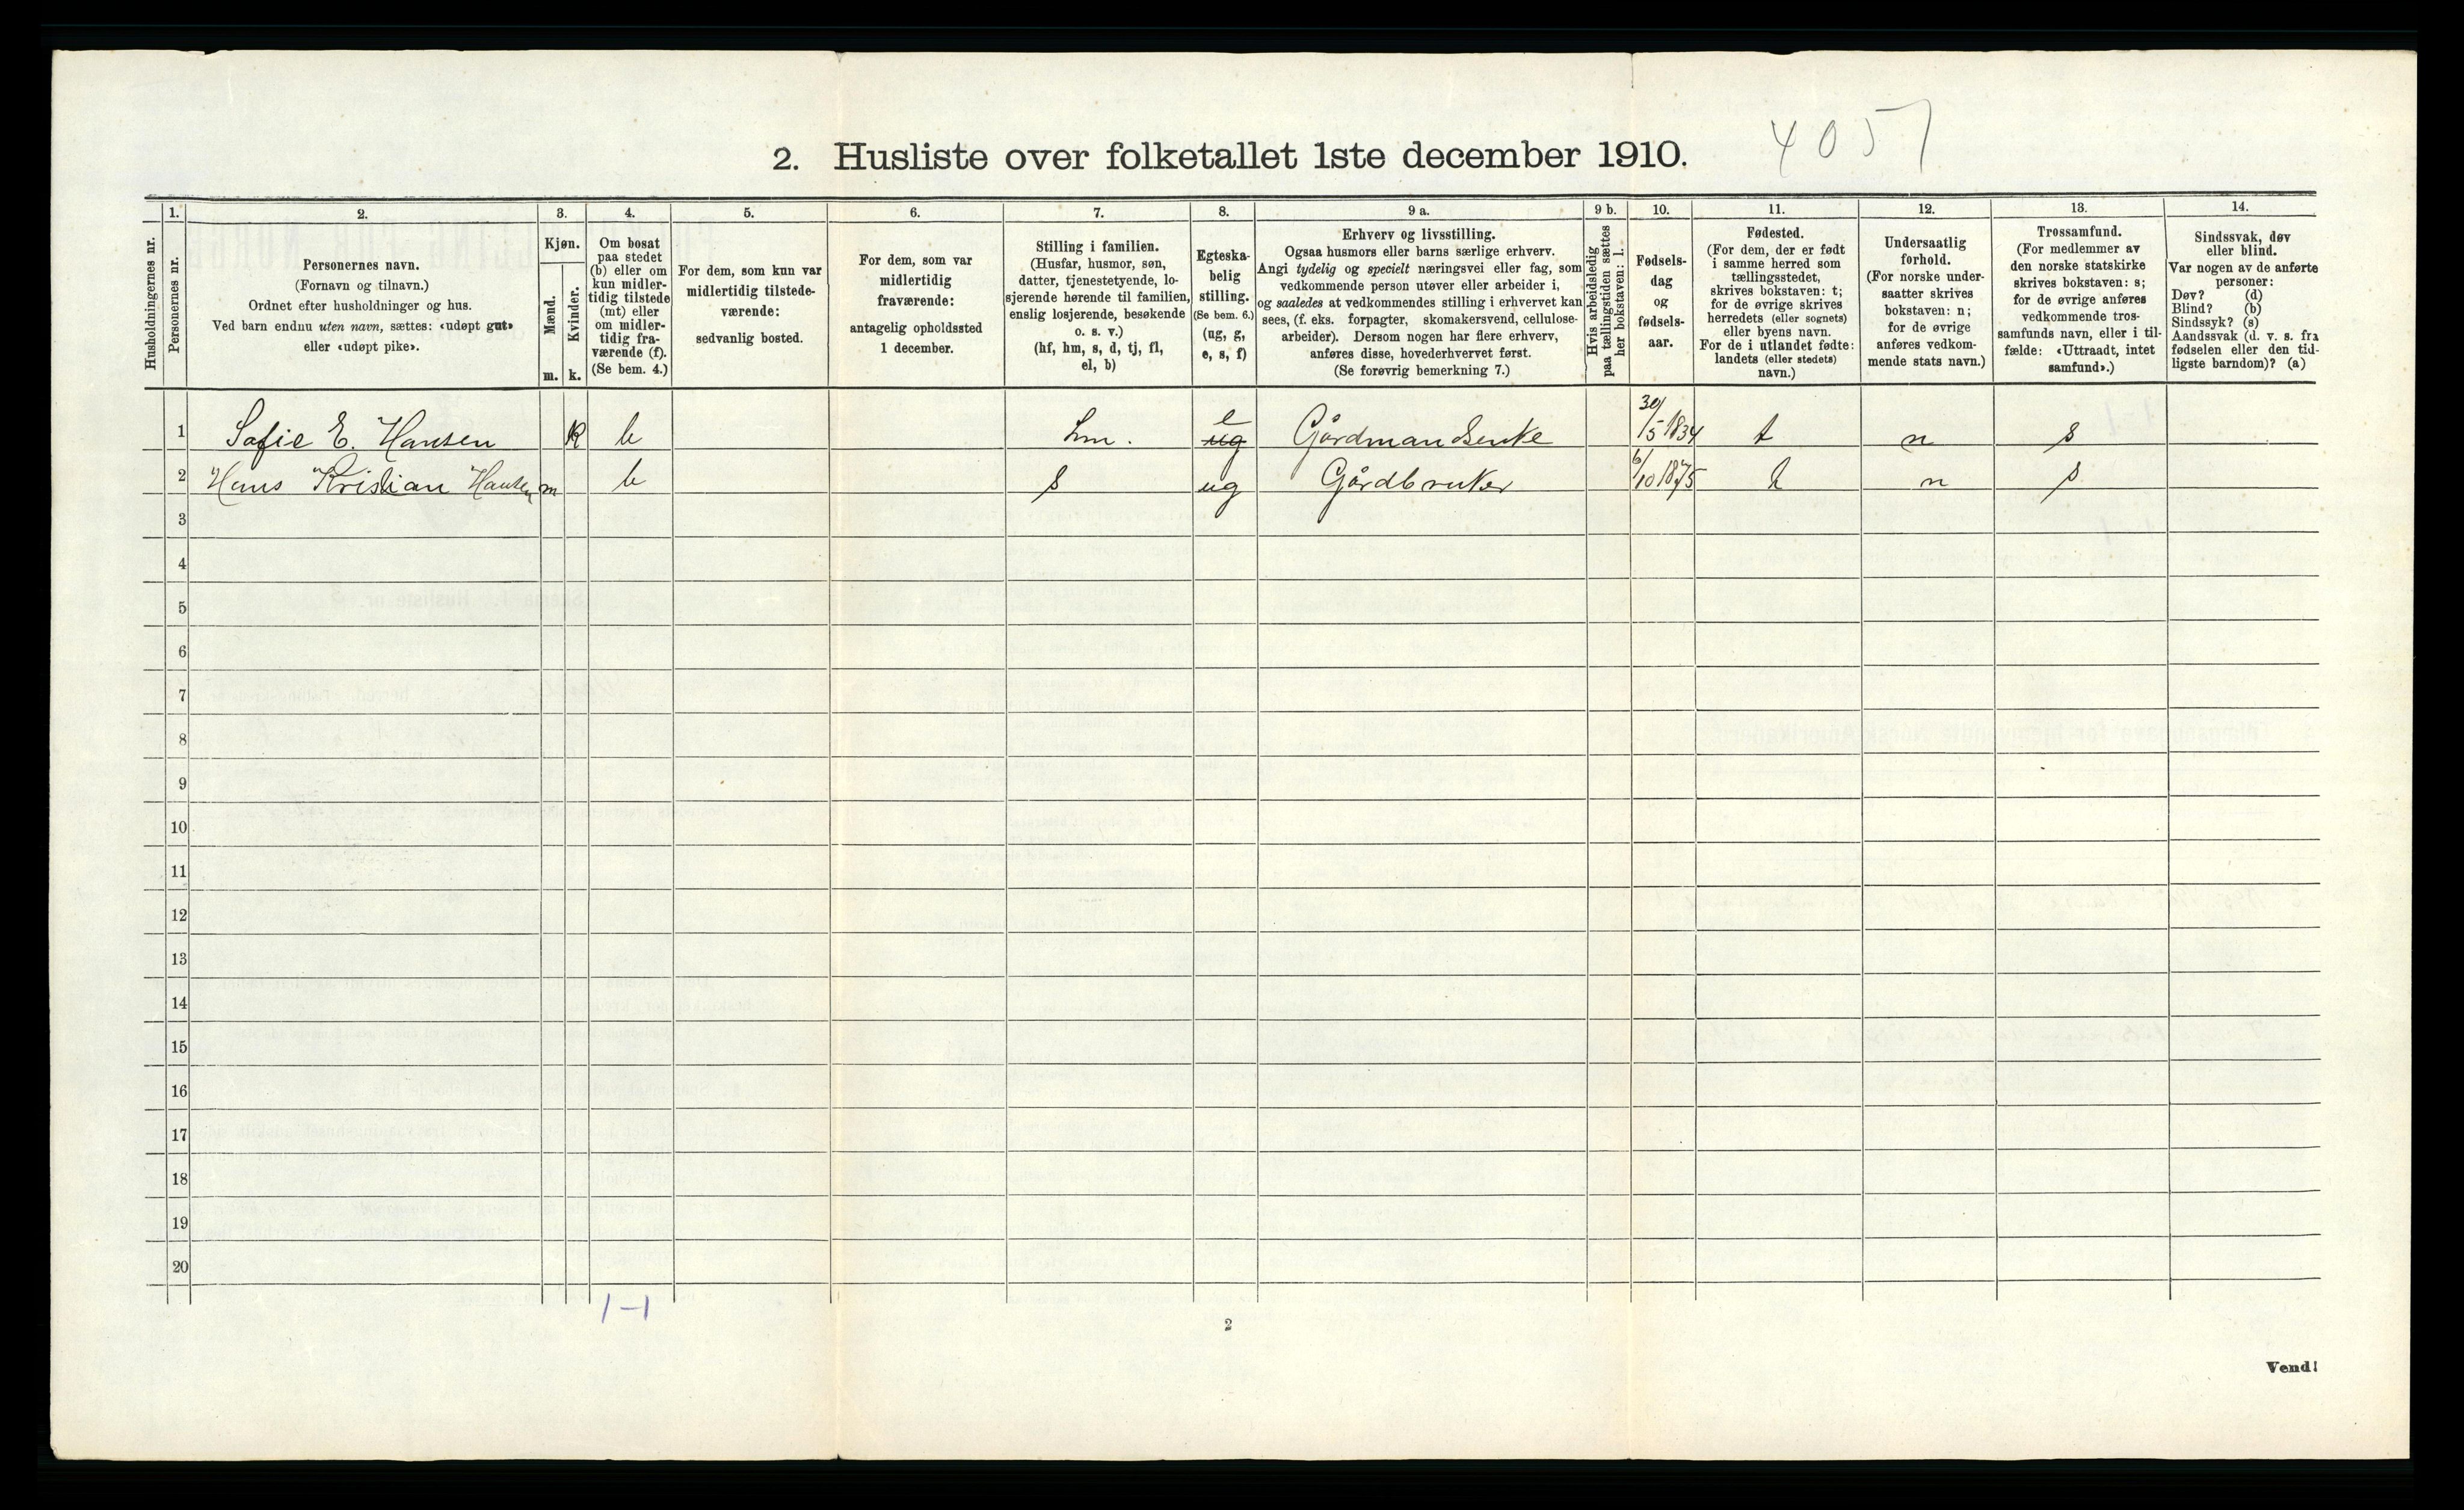 4057
2. Husliste over folketallet 1ste december 1910.
Husholdningernes nr.
1.
Personernes nr.
2.
Personernes navn.
(Fornavn og tilnavn.)
Ordnet efter husholdninger og hus.
Ved barn endnu uten navn, sættes: «udøpt gut»
eller «udøpt pike».
3.
Kjøn.
Mænd.
Kvinder.
m. k.
4.
Om bosat
paa stedet
(b) eller om
kun midler-
tidig tilstede
(mt) eller
om midler-
tidig fra-
værende (f).
(Se bem. 4.)
5.
For dem, som kun var
midlertidig tilstede-
værende:
sedvanlig bosted.
6.
For dem, som var
midlertidig
fraværende:
antagelig opholdssted
1 december.
7.
Stilling i familien.
(Husfar, husmor, søn,
datter, tjenestetyende, lo-
sjerende hørende til familien,
enslig losjerende, besøkende
o. s. v.)
(hf, hm, s, d, tj, fl,
el, b)
8.
Egteska-
belig
stilling.
(Se bem. 6.)
(ug, g,
e, s, f)
9 a.
Erhverv og livsstilling.
Ogsaa husmors eller barns særlige erhverv.
Angi tydelig og specielt næringsvei eller fag, som
vedkommende person utøver eller arbeider i,
og saaledes at vedkommendes stilling i erhvervet kan
sees, (f. eks. forpagter, skomakersvend, cellulose-
arbeider). Dersom nogen har flere erhverv,
anføres disse, hovederhvervet først.
(Se forøvrig bemerkning 7.)
9 b.
Hvis arbeidsledig
paa tællingstiden sættes
her bokstaven: l.
10.
Fødsels-
dag
og
fødsels-
aar.
11.
Fødested.
(For dem, der er født
i samme herred som
tællingsstedet,
skrives bokstaven: t;
for de øvrige skrives
herredets (eller sognets)
eller byens navn.
For de i utlandet fødte:
landets (eller stedets)
navn.)
12.
Undersaatlig
forhold.
(For norske under-
saatter skrives
bokstaven: n;
for de øvrige
anføres vedkom-
mende stats navn.)
13.
Trossamfund.
(For medlemmer av
den norske statskirke
skrives bokstaven: s;
for de øvrige anføres
vedkommende tros-
samfunds navn, eller i til-
fælde: «Uttraadt, intet
samfund».)
14.
Sindssvak, døv
eller blind.
Var nogen av de anførte
personer:
Døv? (d)
Blind? (b)
Sindssyk? (s)
Aandssvak (d. v. s. fra
fødselen eller den tid-
ligste barndom)? (a)
1 Sofie E. Hansen k b hm. ug e Gårdmandsenke 30/5 1834 t n s
2 Hans Kristian Hansen m b s ug Gårdbruker 6/10 1875 t n s
3
4
5
6
7
8
9
10
11
12
13
14
15
16
17
18
19
20
1-1
2
Vend!